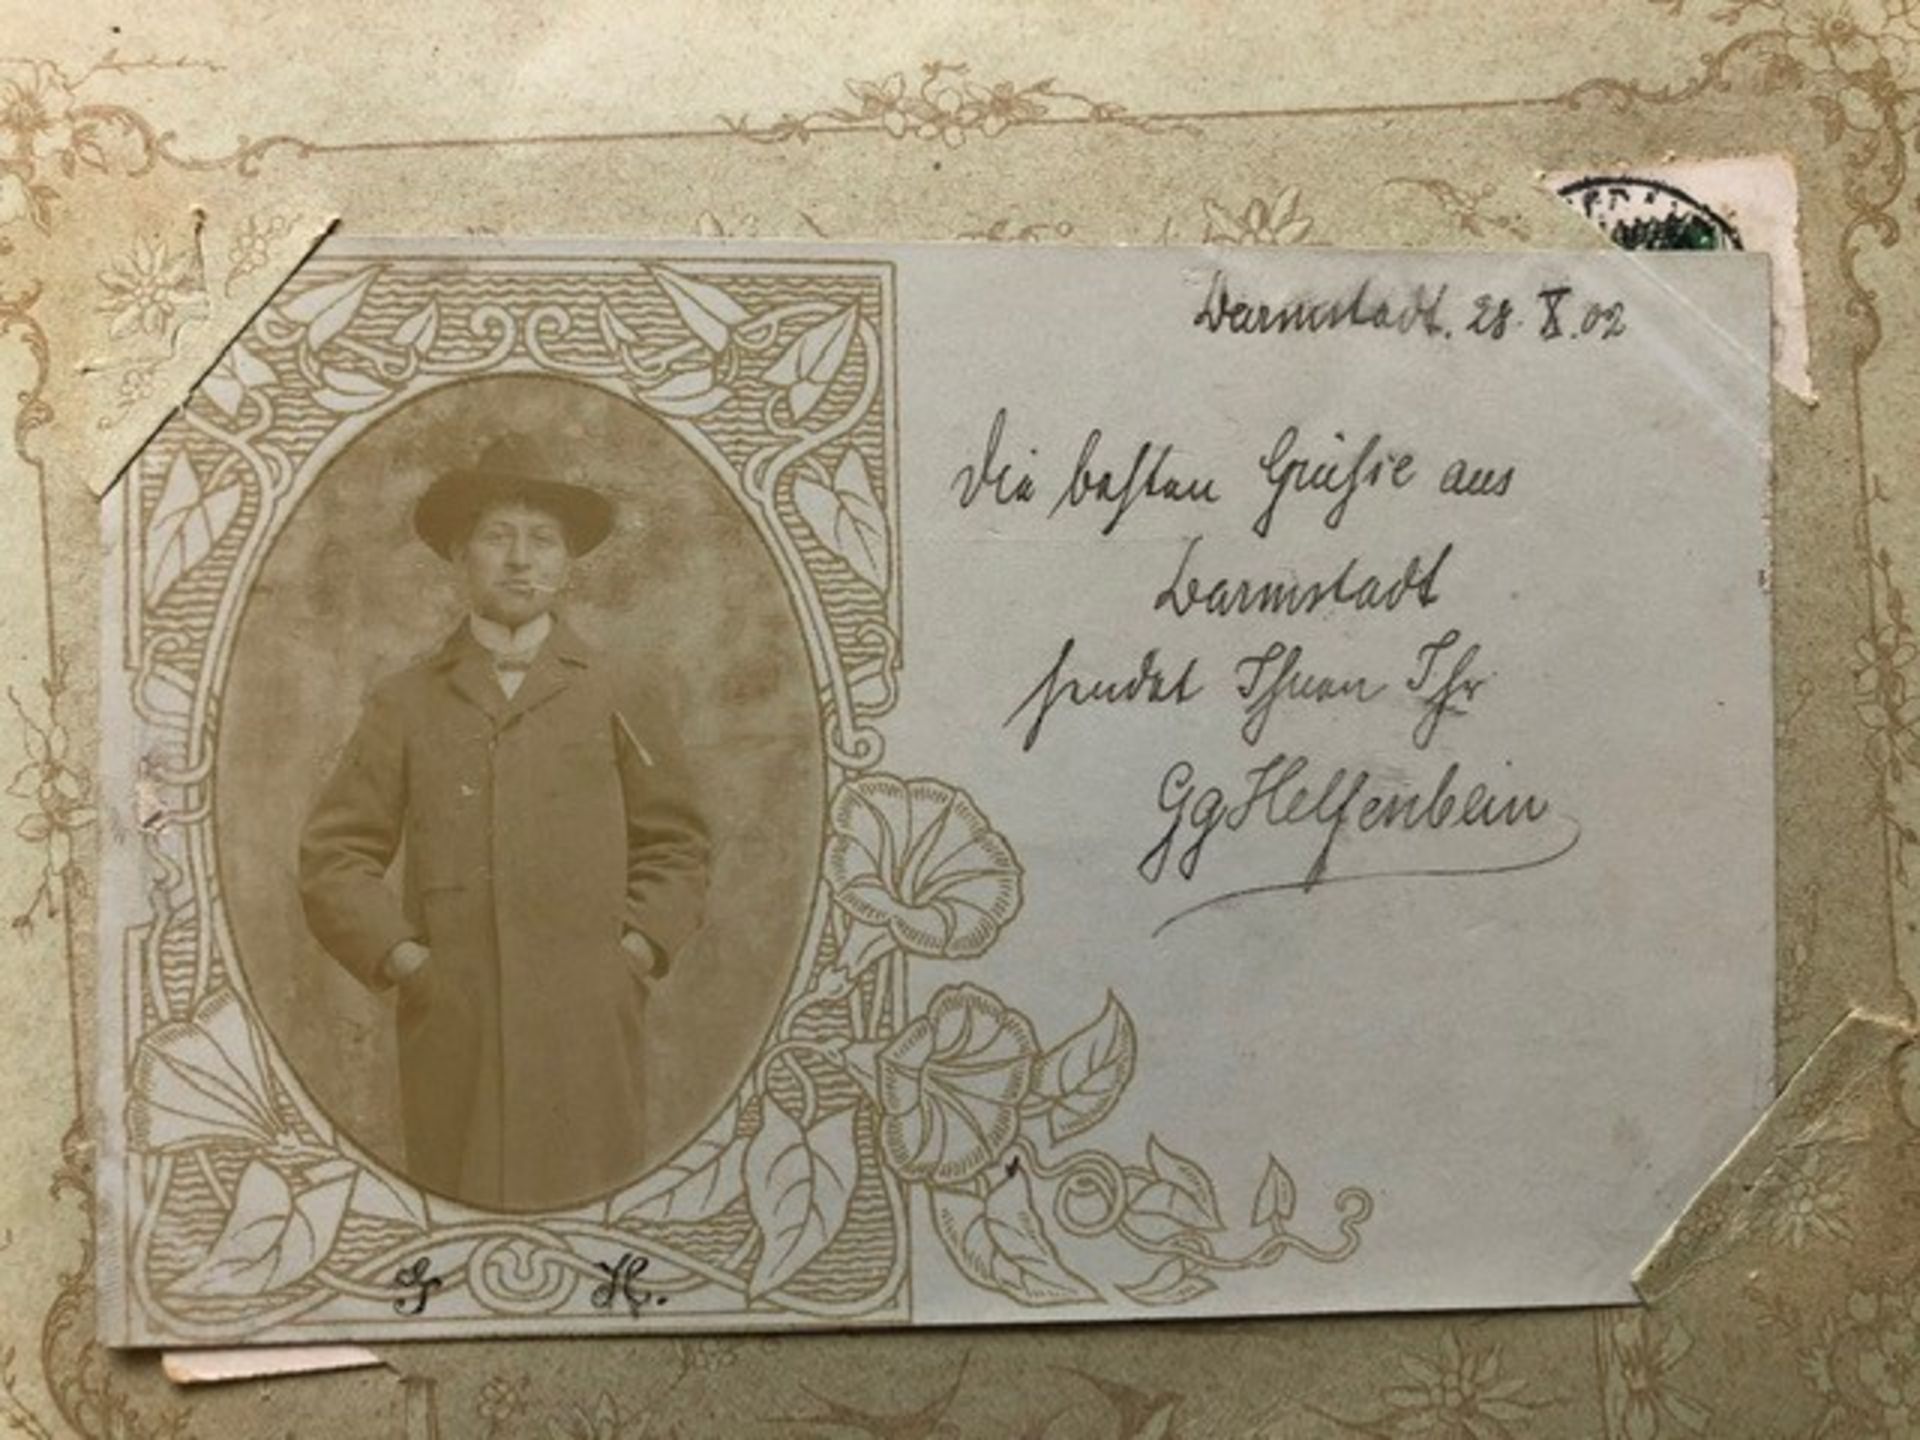 Darmstadt. 28. X. 02
Die besten Grüsse aus
Darmstadt
sendet Ihnen Ihr
Gg Helfenbein
G H.